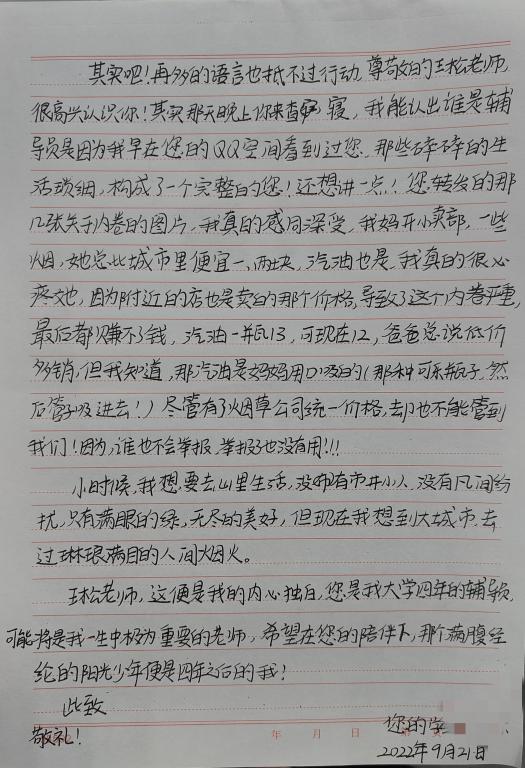 其实吧!再多的语言也抵不过行动,尊敬的王松老师,
很高兴认识你!其实那天晚上你来查寝,我能认出谁是辅
导员是因为我早在您的QQ空间看到过您,那些碎碎的生
活琐细,构成了一个完整的您!还想讲一点!您转发的那
几张关于内卷的图片,我真的感同深受,我妈开小卖部,一些
烟,她总比城市里便宜一、两块,汽油也是,我真的很心
疼她,因为附近的店也是卖的那个价格,导致了这个内卷严重,
最后都赚不了钱,汽油一瓶13,可现在12,爸爸总说低价
多销,但我知道,那汽油是妈妈用口吸的(那种可乐瓶子,然
后管子吸进去!)尽管有了烟草公司统一价格,却也不能管到
我们!因为,谁也不会举报,举报了也没有用!!!
小时候,我想要去山里生活,没那有市井小人,没有凡间纷
扰,只有满眼的绿,无尽的美好,但现在我想到大城市,去
过琳琅满目的人间烟火。
王松老师,这便是我的内心独白,您是我大学四年的辅导员,
可能将是我一生中极为重要的老师,希望在您的陪伴下,那个满腹经
纶的阳光少年便是四年之后的我!
此致
敬礼!
您的学
年 月 日
2022年9月21日